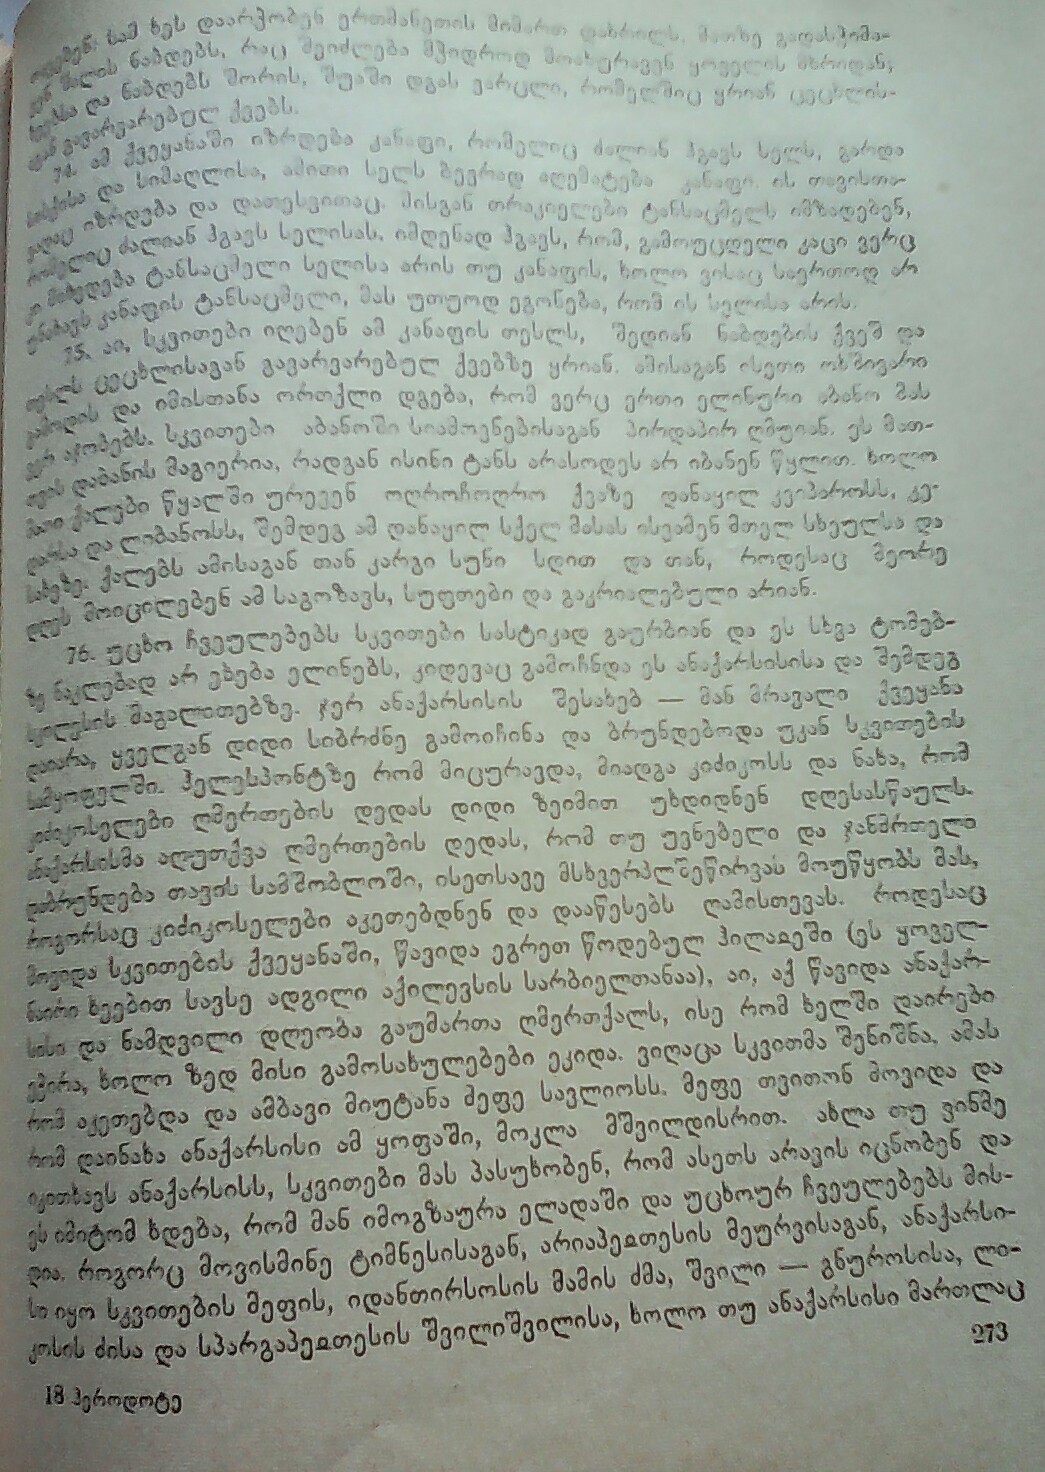 სამ ხეს დაარჭობენ ერთმანეთის მიმართ დახრილს. მათზე გადასჭიმა-
შალის ნაბდებს, რაც შეიძლება მჭიდროდ მოახურავენ ყოველის მხრიდან;
და ნაბდებს შორის, შუაში დგას ვარცლი, რომელშიც ყრიან ცეცხლის-
გავარვარებულ ქვებს.
74. ამ ქვეყანაში იზრდება კანაფი, რომელიც ძალიან ჰგავს სელს, გარდა
სისქისა და სიმაღლისა, ამითი სელს ბევრად აღემატება კანაფი. ის თავისთა-
ვადაც იზრდება და დათესვითაც. მისგან თრაკიელები ტანსაცმელს იმზადებენ,
რომელიც ძალიან ჰგავს სელისას. იმდენად ჰგავს, რომ, გამოუცდელი კაცი ვერც
კი მიხვდება ტანსაცმელი სელისა არის თუ კანაფის, ხოლო ვისაც საერთოდ არ
უნახავს კანაფის ტანსაცმელი, მას უთუოდ ეგონება, რომ ის სელისა არის.
75. აი, სკვითები იღებენ ამ კანაფის თესლს, შედიან ნაბდების ქვეშ და
თესლს ცეცხლისაგან გავარვარებულ ქვებზე ყრიან. ამისაგან ისეთი ოხშივარი
გამოდის და იმისთანა ორთქლი დგება, რომ ვერც ერთი ელინური აბანო მას
ვერ აჯობებს. სკვითები აბანოში სიამოვნებისაგან პირდაპირ ღმუიან. ეს მათ-
თვის დაბანის მაგიერია, რადგან ისინი ტანს არასოდეს არ იბანენ წყლით. ხოლო
მათი ქალები წყალში ურევენ ოღროჩოღრო ქვაზე დანაყილ კვიპაროსს, კე-
დარსა და ლიბანოსს, შემდეგ ამ დანაყილ სქელ მასას ისვამენ მთელ სხეულსა და
სახეზე. ქალებს ამისაგან თან კარგი სუნი სდით და თან, როდესაც მეორე
დღეს მოიცილებენ ამ საგოზავს, სუფთები და გაკრიალებული არიან.
76. უცხო ჩვეულებებს სკვითები სასტიკად გაურბიან და ეს სხვა ტომებ-
ზე ნაკლებად არ ეხება ელინებს, კიდევაც გამოჩნდა ეს ანაქარსისისა და შემდეგ
სკილესის მაგალითებზე. ჯერ ანაქარსისის შესახებ — მან მრავალი ქვეყანა
დაიარა, ყველგან დიდი სიბრძნე გამოიჩინა და ბრუნდებოდა უკან სკვითების
სამყოფელში. ჰელესპონტზე რომ მიცურავდა, მიადგა კიძიკოსს და ნახა, რომ
კიძიკოსელები ღმერთების დედას დიდი ზეიმით უხდიდნენ დღესასწაულს.
ანაქარსისმა აღუთქვა ღმერთების დედას, რომ თუ უვნებელი და ჯანმრთელი
დაბრუნდება თავის სამშობლოში, ისეთსავე მსხვერპლშეწირვას მოუწყობს მას,
როგორსაც კიძიკოსელები აკეთებდნენ და დააწესებს ღამისთევას. როდესაც
მოვიდა სკვითების ქვეყანაში, წავიდა ეგრეთ წოდებულ ჰილაჲეში (ეს ყოველ-
ნაირი ხეებით სავსე ადგილი აქილევსის სარბიელთანაა), აი, აქ წავიდა ანაქარ-
სისი და ნამდვილი დღეობა გაუმართა ღმერთქალს, ისე რომ ხელში დაირები
ეჭირა, ხოლო ზედ მისი გამოსახულებები ეკიდა. ვიღაცა სკვითმა შენიშნა, ამას
რომ აკეთებდა და ამბავი მიუტანა მეფე სავლიოსს. მეფე თვითონ მოვიდა და
რომ დაინახა ანაქარსისი ამ ყოფაში, მოკლა მშვილდისრით. ახლა თუ ვინმე
იკითხავს ანაქარსისს, სკვითები მას პასუხობენ, რომ ასეთს არავის იცნობენ და
ეს იმიტომ ხდება, რომ მან იმოგზაურა ელადაში და უცხოურ ჩვეულებებს მის-
დია. როგორც მოვისმინე ტიმნესისაგან, არიაპეჲთესის მეურვისაგან, ანაქარსი-
სი იყო სკვითების მეფის, იდანთირსოსის მამის ძმა, შვილი — გნუროსისა, ლი-
კოსის ძისა და სპარგაპეჲთესის შვილიშვილისა, ხოლო თუ ანაქარსისი მართლაც
273
18 ჰეროდოტე